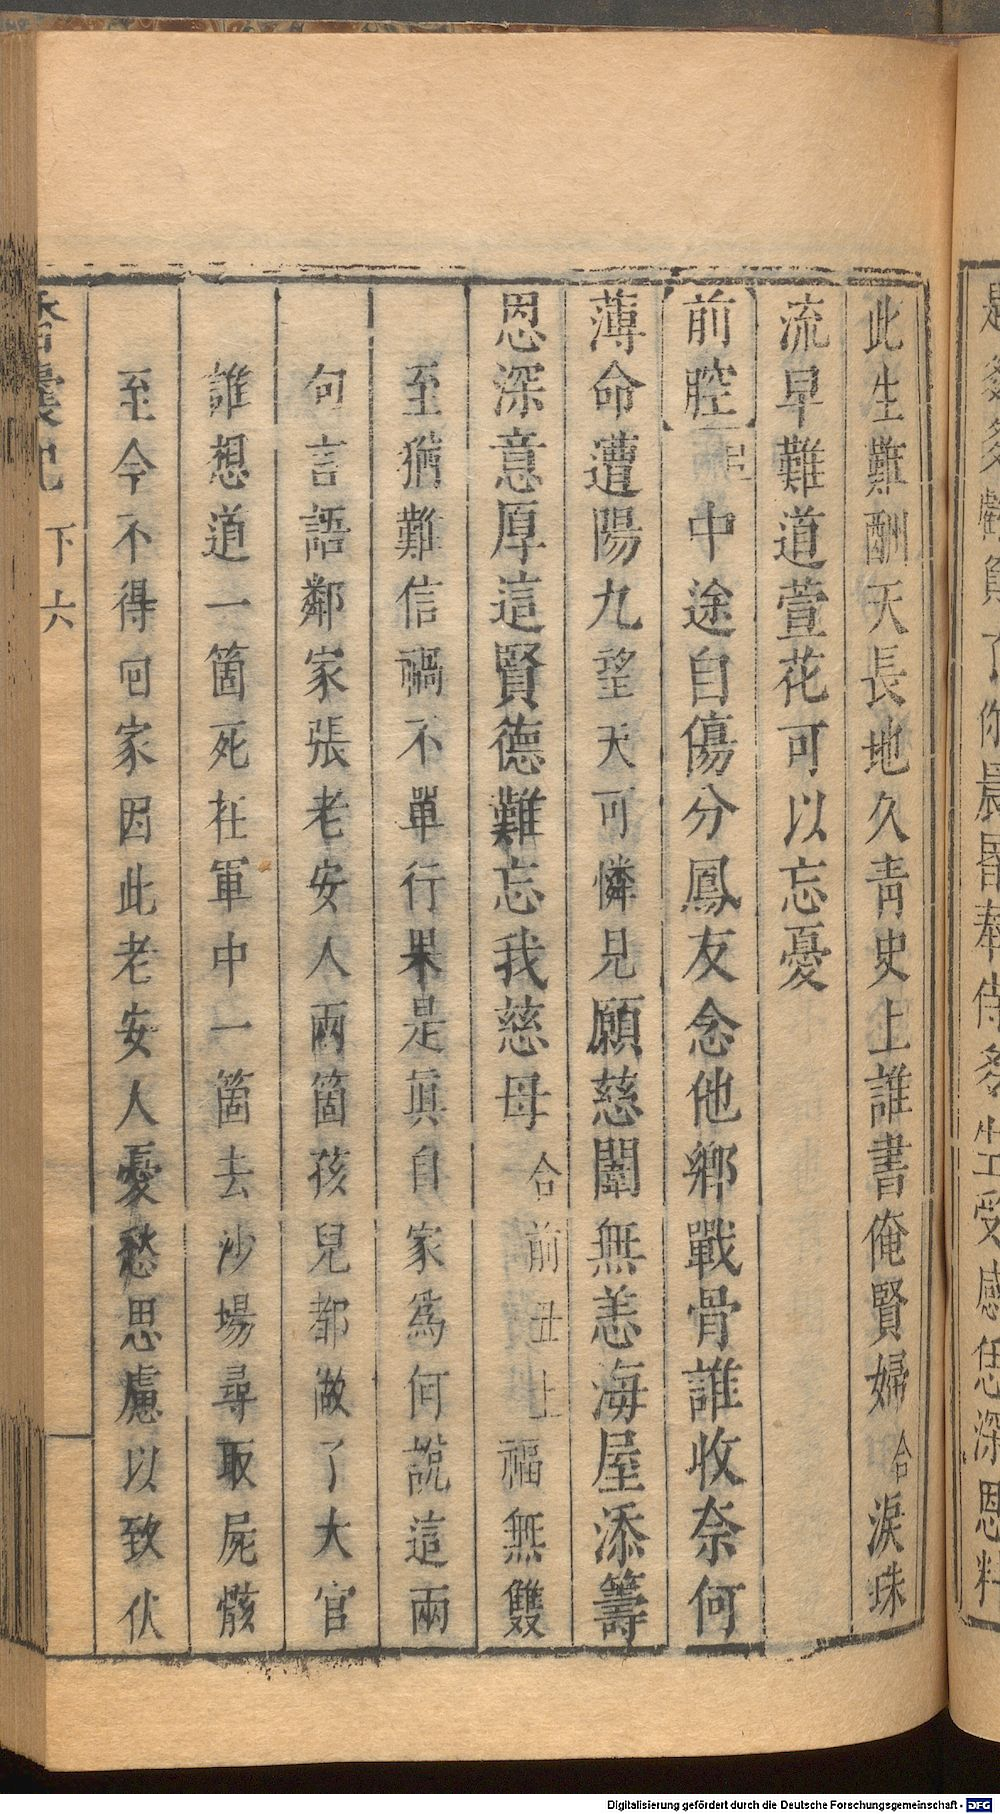 此生難酬天長地久青史上誰書俺賢婦合淚珠
流早難道萱花可以忘憂
前腔旦中途自傷分鳳友念他鄉戰骨誰收奈何
薄命遭陽九望天可憐見願慈闈無恙海屋添籌
恩深意厚這賢德難忘我慈母合前丑上福無雙
至猶難信禍不單行果是眞自家爲何說這兩
句言語鄰家張老安人兩箇孩兒都做了大官
誰想道一箇死在軍中一箇去沙場尋取屍骸
至今不得回家因此老安人憂愁思慮以致伏
香囊記 下 六
Digitalisierung gefördert durch die Deutsche Forschungsgemeinschaft - DFG